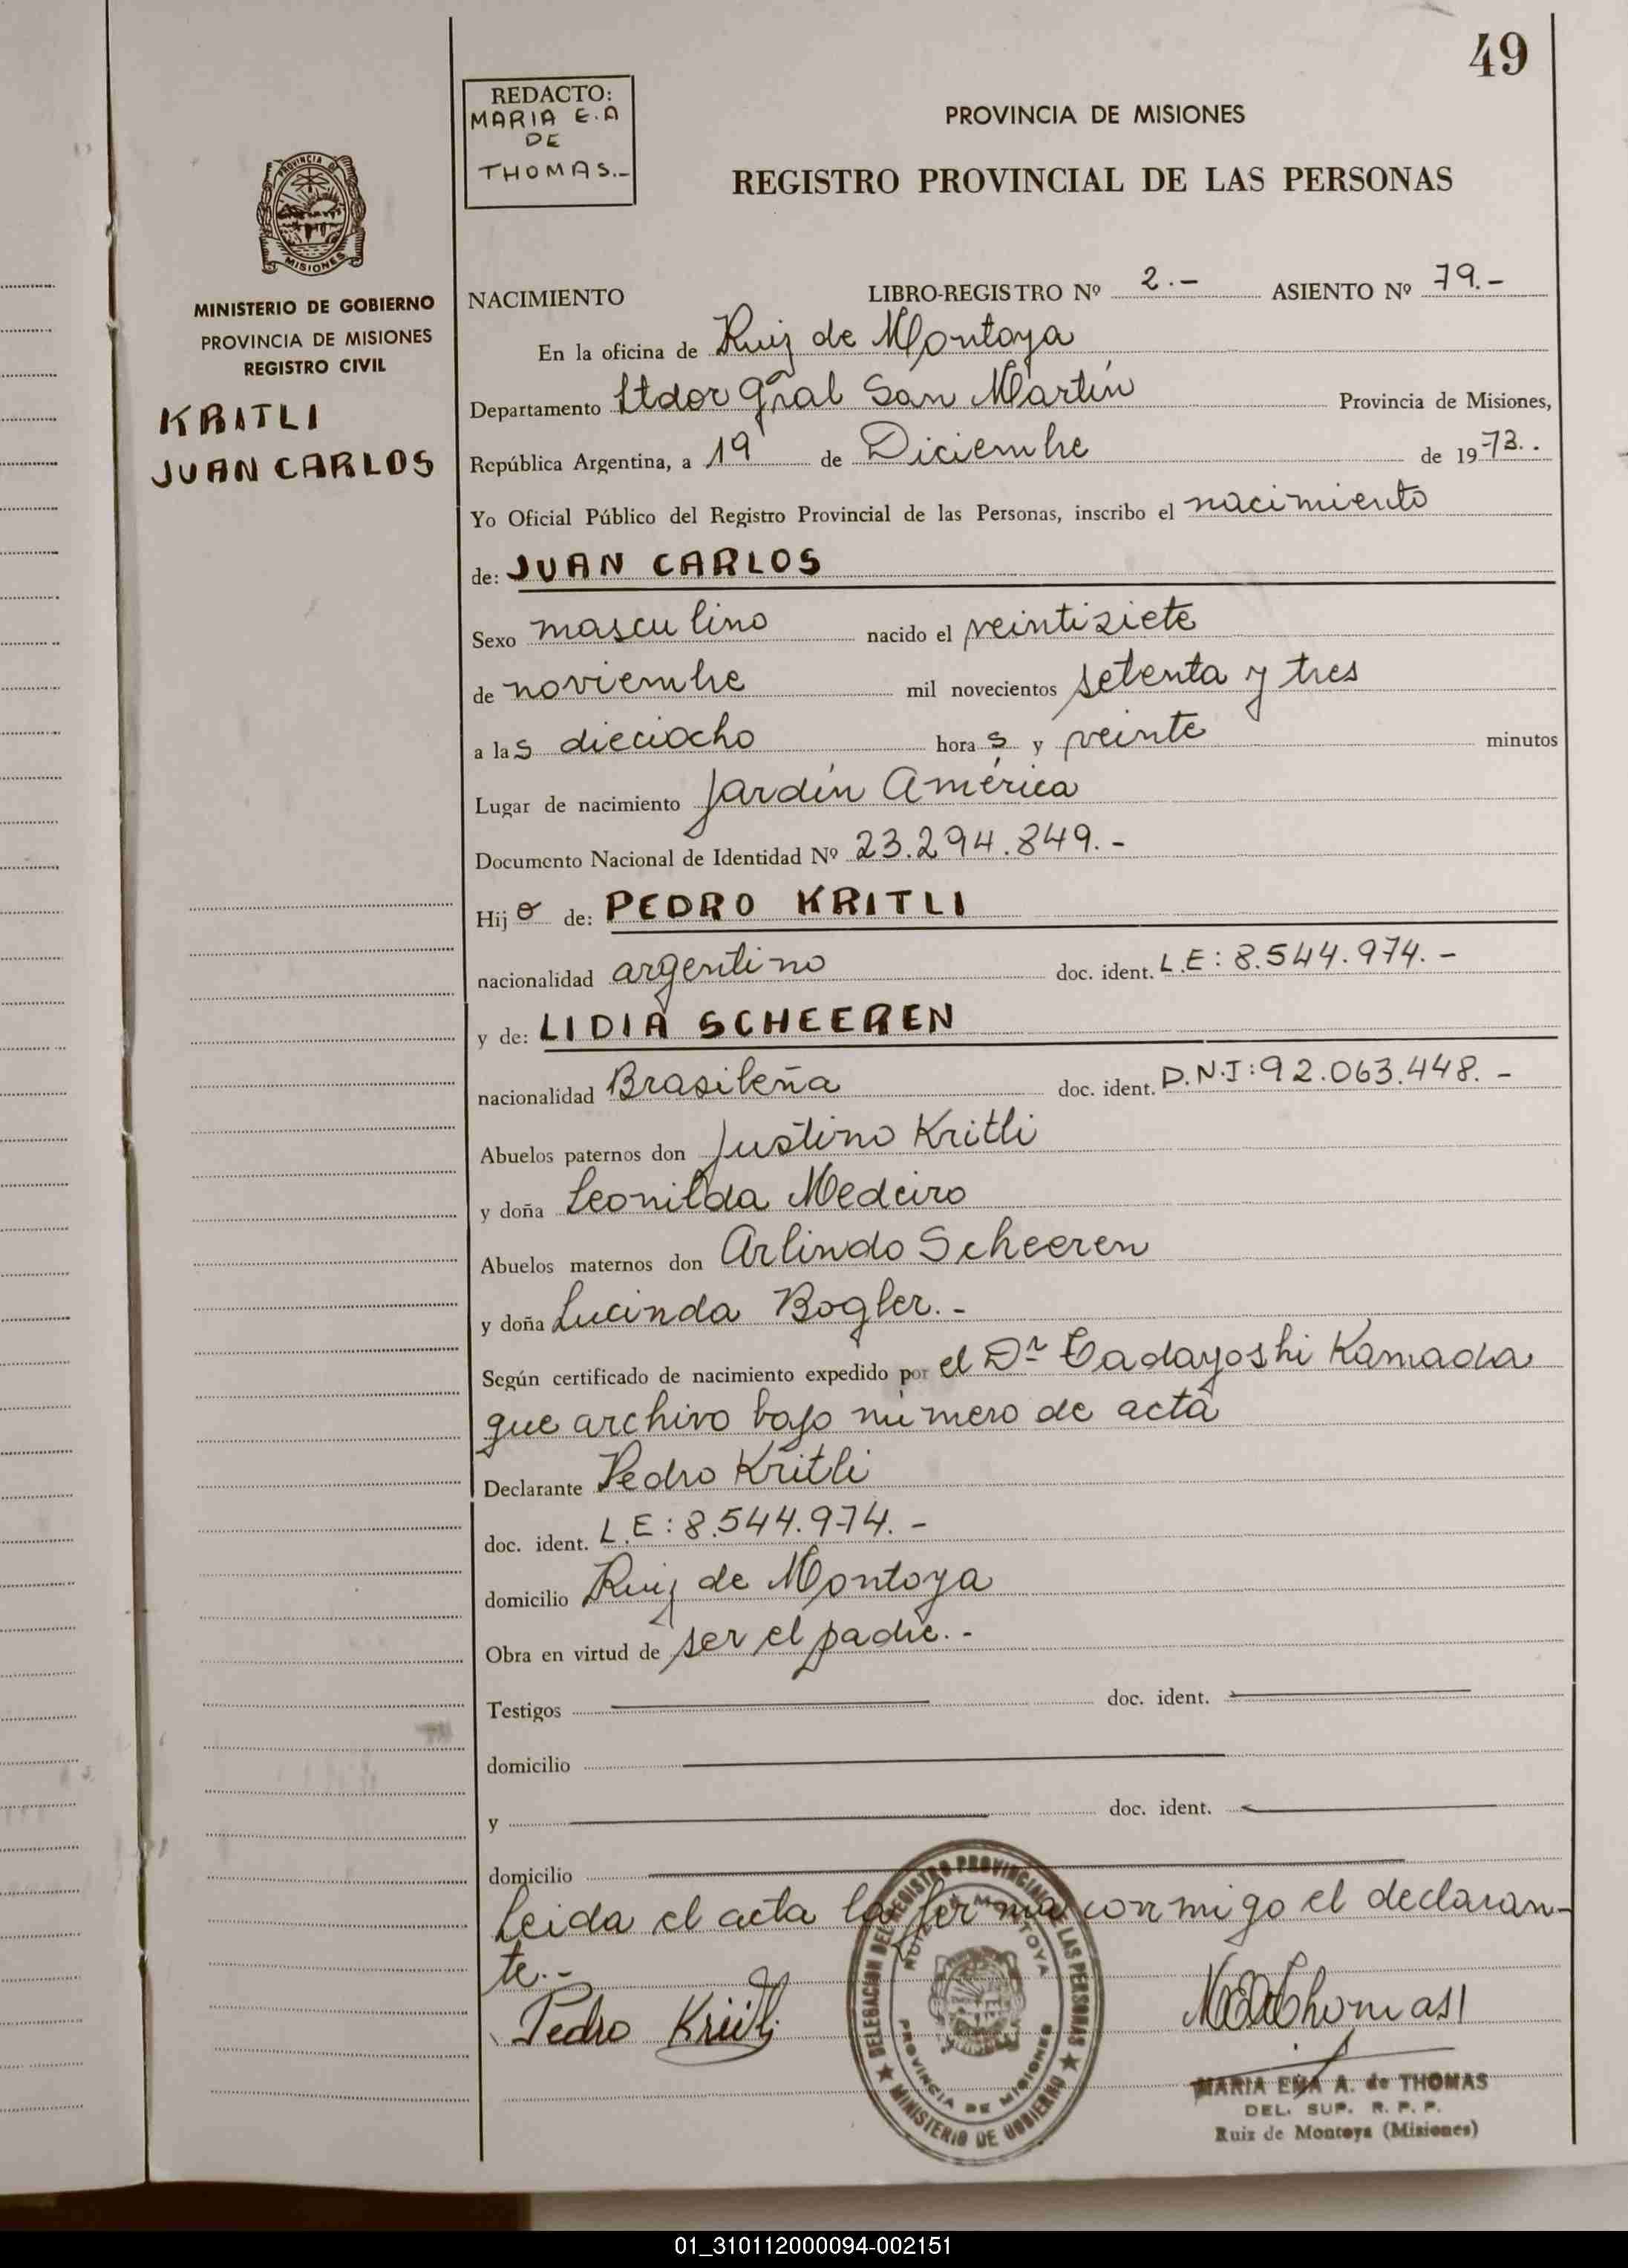 49
REDACTO:
MARIA E.A
DE
THOMAS.-
PROVINCIA DE MISIONES
REGISTRO PROVINCIAL DE LAS PERSONAS
PROVINCIA DE
MISIONES
MINISTERIO DE GOBIERNO
PROVINCIA DE MISIONES
REGISTRO CIVIL
KRITLI
JUAN CARLOS
NACIMIENTO LIBRO-REGISTRO Nº 2.- ASIENTO Nº 79.-
En la oficina de Ruiz de Montoya
Departamento Ltdor Gral San Martín Provincia de Misiones,
República Argentina, a 19 de Diciembre de 1973..
Yo Oficial Público del Registro Provincial de las Personas, inscribo el nacimiento
de: JUAN CARLOS
Sexo masculino nacido el veintisiete
de noviembre mil novecientos setenta y tres
a las dieciocho horas y veinte minutos
Lugar de nacimiento Jardín América
Documento Nacional de Identidad Nº 23.294.849.-
Hijo de: PEDRO KRITLI
nacionalidad argentino doc. ident. L.E: 8.544.974.-
y de: LIDIA SCHEEREN
nacionalidad Brasileña doc. ident. D.N.I: 92.063.448.-
Abuelos paternos don Justino Kritli
y doña Leonilda Medeiro
Abuelos maternos don Arlindo Scheeren
y doña Lucinda Bogler.-
Según certificado de nacimiento expedido por el Dr Tadayoshi Kamada
que archivo bajo número de acta
Declarante Pedro Kritli
doc. ident. L.E: 8.544.974.-
domicilio Ruiz de Montoya
Obra en virtud de ser el padre.-
Testigos doc. ident.
domicilio
y doc. ident.
domicilio
Leida el acta la firma conmigo el declaran-
te.-
Pedro Kritli
DELEGACION DEL REGISTRO PROVINCIAL DE LAS PERSONAS
RUIZ DE MONTOYA
PROVINCIA DE MISIONES
MINISTERIO DE GOBIERNO
MARIA EMA A. de THOMAS
DEL. SUP. R. P. P.
Ruiz de Montoya (Misiones)
01_310112000094-002151